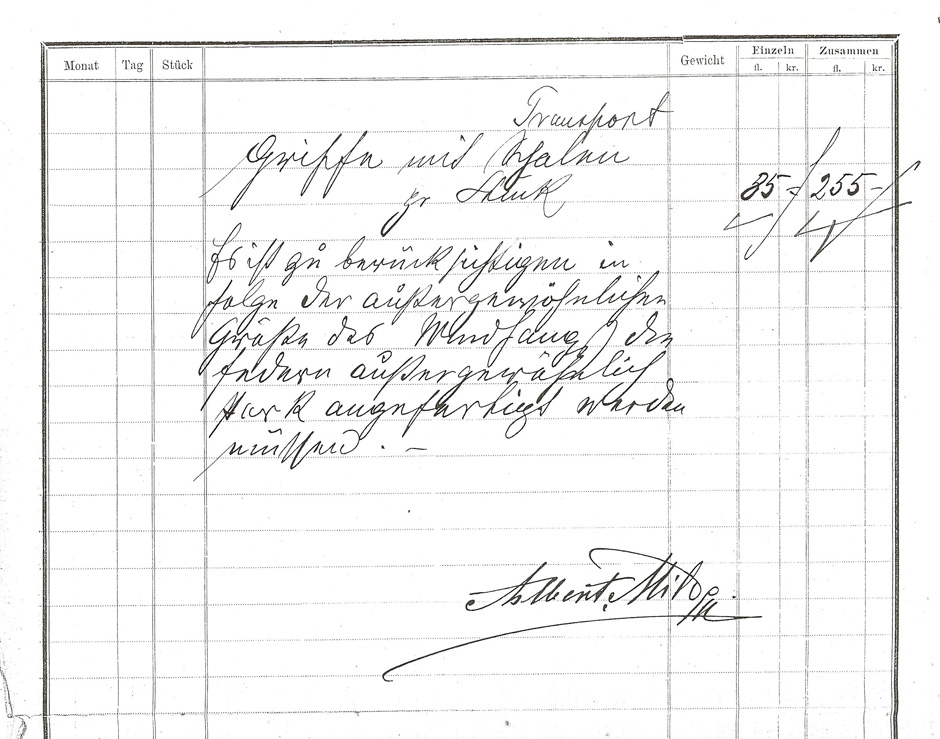 Monat Tag Stück Gewicht Einzeln Zusammen
fl. kr. fl. kr.
Transport
Griffe mit Schalen
pr Stück 85 - 255 -
Es ist zu berücksichtigen in
folge der außergewöhnlichen
Größe des Windfang's die
federn außergewöhnlich
stark angefertigt werden
müssen. —
Albert